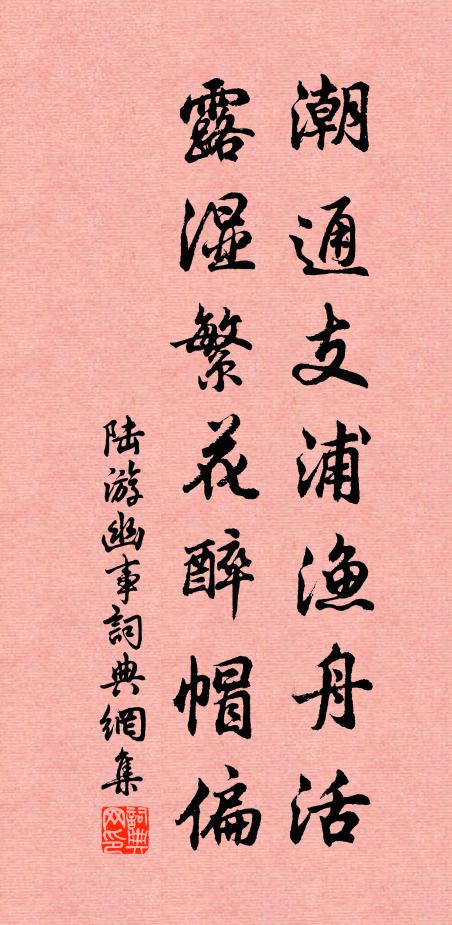 潮通支浦渔舟活
露湿繁花醉帽偏
陆游幽事詞典網集
詞典网印